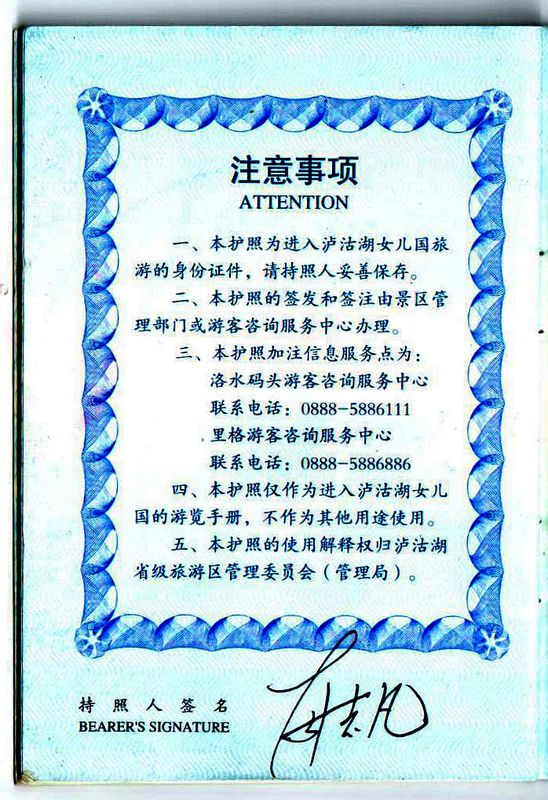 注意事项
ATTENTION
一、本护照为进入泸沽湖女儿国旅
游的身份证件，请持照人妥善保存。
二、本护照的签发和签注由景区管
理部门或游客咨询服务中心办理。
三、本护照加注信息服务点为：
洛水码头游客咨询服务中心
联系电话：0888-5886111
里格游客咨询服务中心
联系电话：0888-5886886
四、本护照仅作为进入泸沽湖女儿
国的游览手册，不作为其他用途使用。
五、本护照的使用解释权归泸沽湖
省级旅游区管理委员会（管理局）。
持照人签名
BEARER'S SIGNATURE